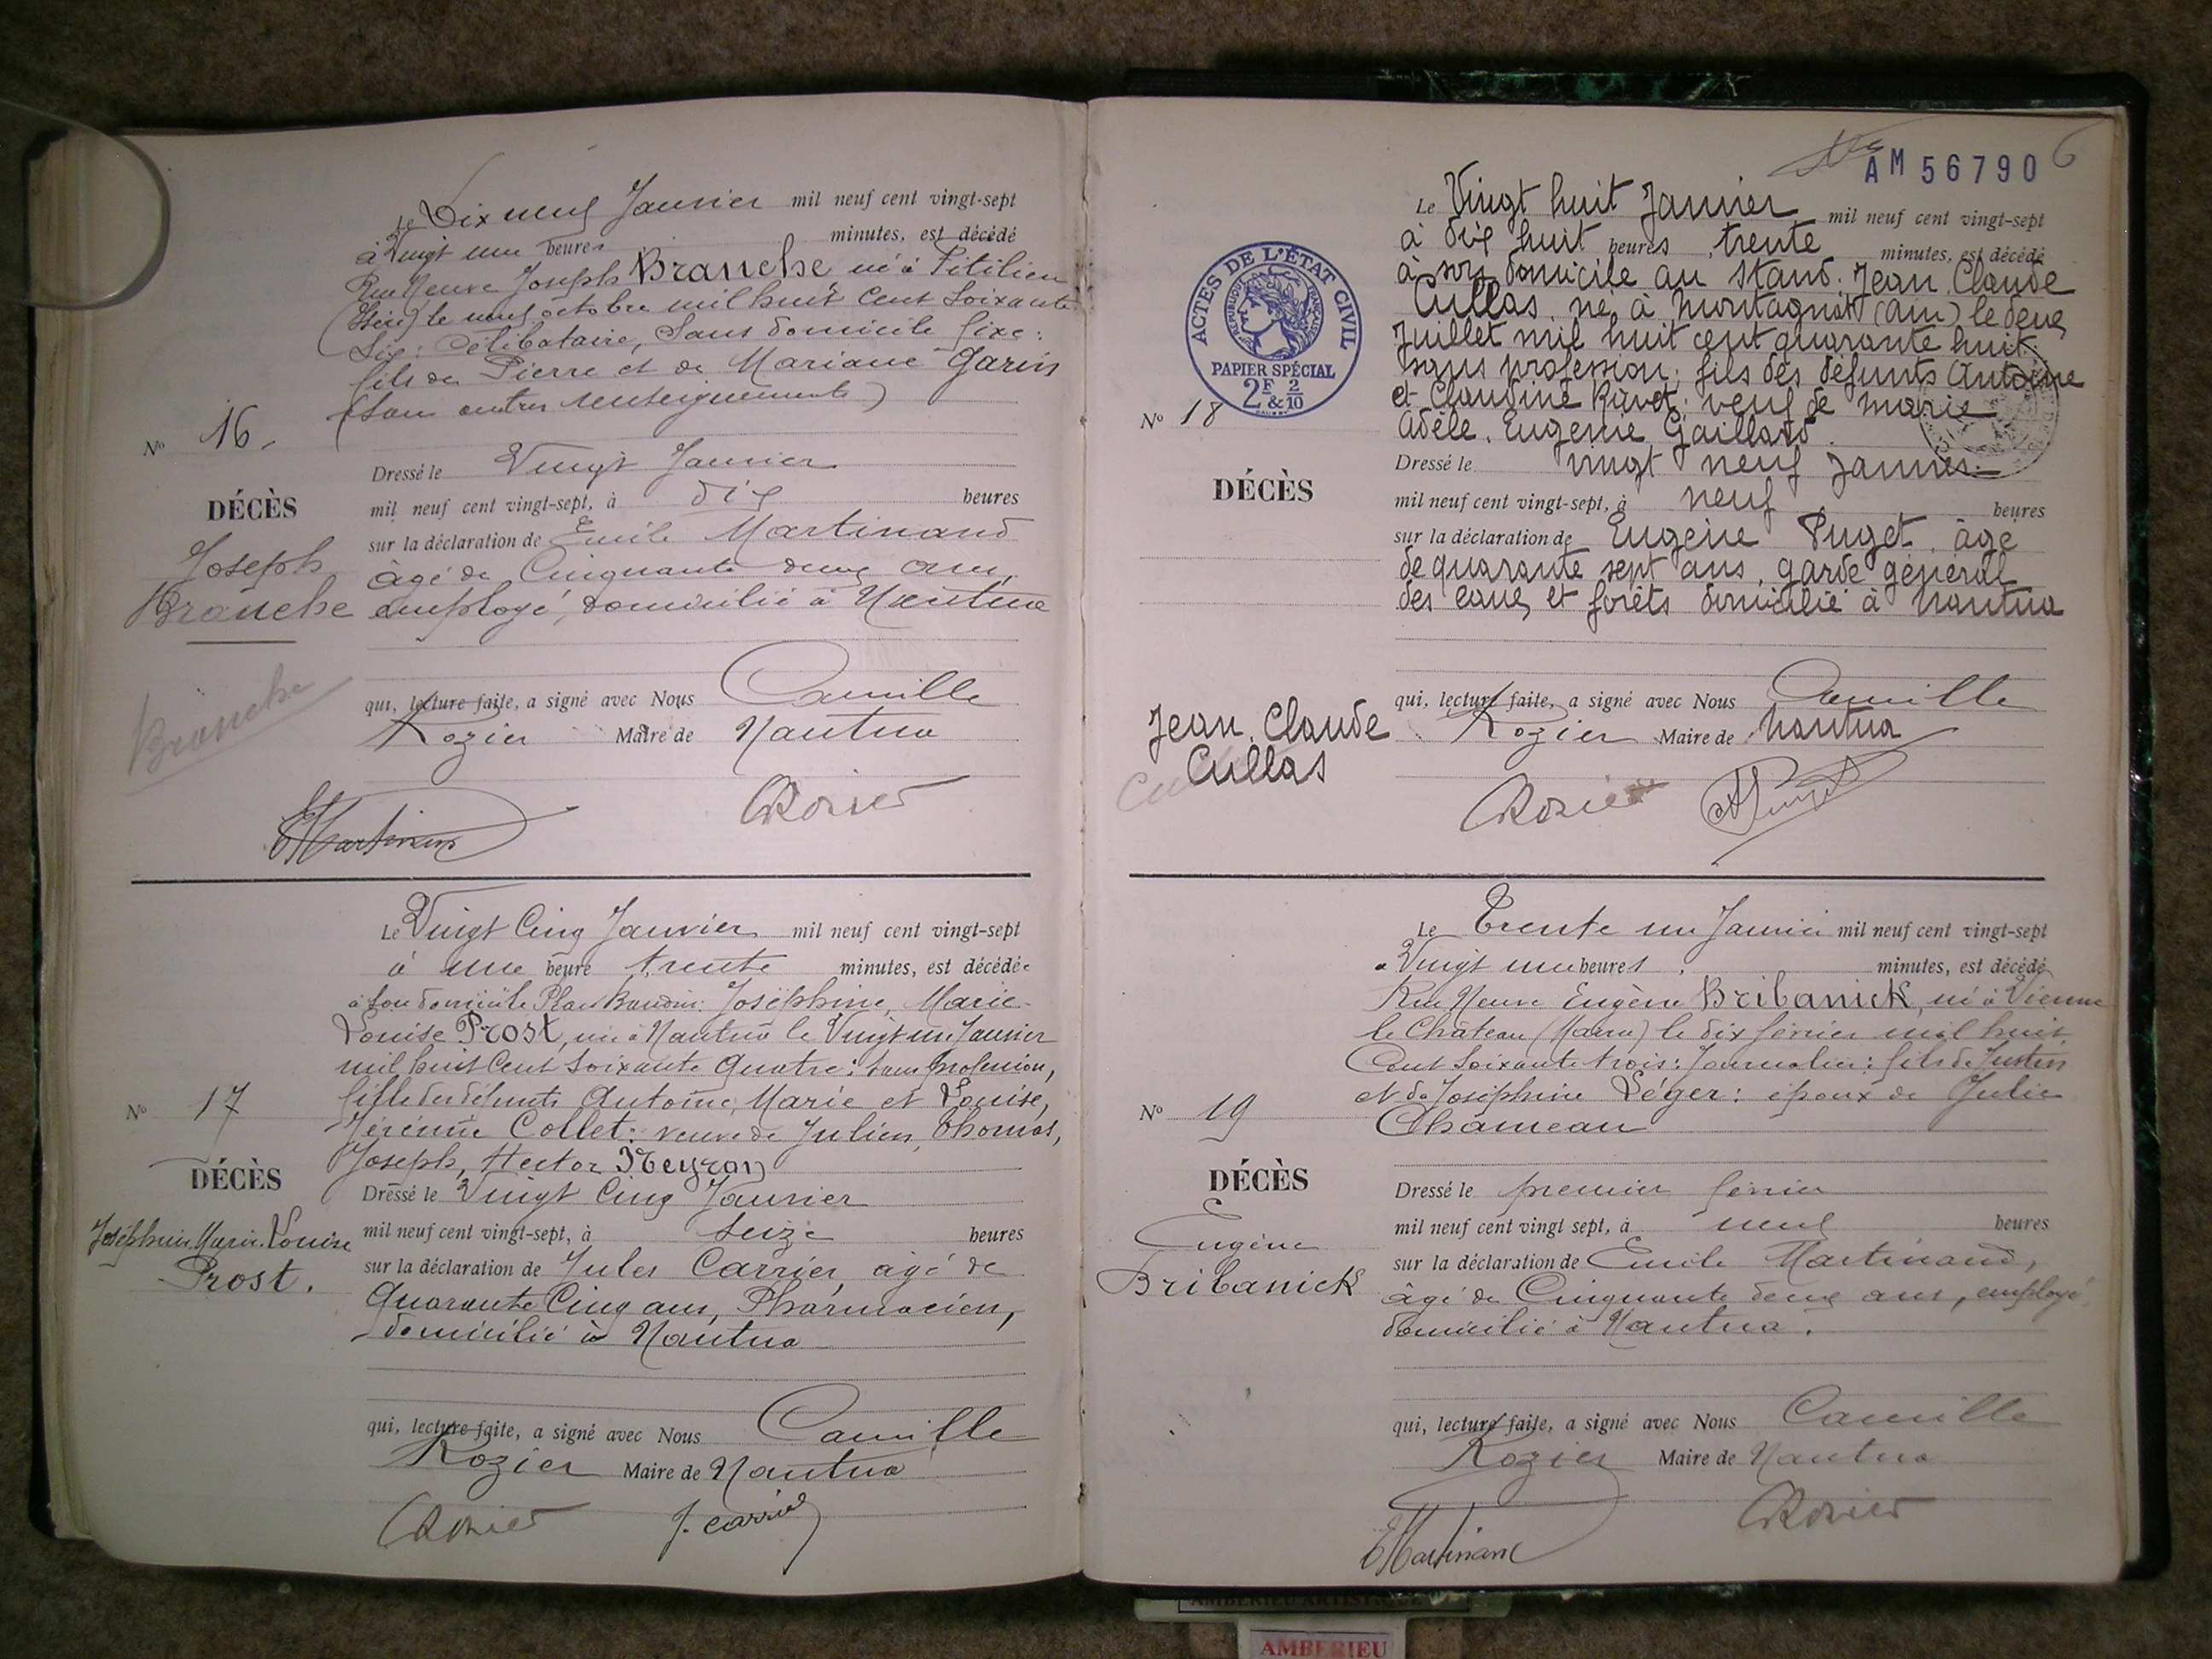 Le Dix neuf Janvier mil neuf cent vingt-sept
à Vingt une heures minutes, est décédé
Rue Neuve Joseph Branche né à Pitilien
(Isère) le neuf octobre mil huit Cent Soixante
Dix: Célibataire, Sans domicile fixe:
fils de Pierre et de Mariane Garin
(Sans autres renseignements)
No 16.
Dressé le Vingt Janvier
mil neuf cent vingt-sept, à dix heures
DÉCÈS
sur la déclaration de Emile Martinand
Joseph
âgé de Cinquante deux ans,
Branche
employé, domicilié à Nantua
Branche
qui, lecture faite, a signé avec Nous Camille
Rozier Maire de Nantua
EMartinand
CRozier
Le Vingt Cinq Janvier mil neuf cent vingt-sept
à une heure trente minutes, est décédée
à son domicile Place Baudin: Joséphine, Marie
Louise Prost, née à Nantua le Vingt un Janvier
mil huit Cent Soixante quatre: sans profession,
fille des défunts Antoine, Marie et Louise,
No 17
Jérémie Collet: veuve de Julien, Thomas,
Joseph, Hector Neyron
DÉCÈS
Dressé le Vingt Cinq Janvier
mil neuf cent vingt-sept, à Seize heures
Joséphine, Marie, Louise
Prost.
sur la déclaration de Jules Carrier, âgé de
Quarante Cinq ans, Pharmacien,
domicilié à Nantua
qui, lecture faite, a signé avec Nous Camille
Rozier Maire de Nantua
CRozier J. Carrier
AM 56790 6
Le Vingt huit Janvier mil neuf cent vingt-sept
à dix huit heures, trente minutes, est décédé
à son domicile au Stand. Jean, Claude
Cullas, né à Montagnat (Ain) le deux
Juillet mil huit cent quarante huit:
sans profession; fils des défunts Antoine
et Claudine Ravet; veuf de Marie
Adèle, Eugénie Gaillard.
ACTES DE L'ÉTAT CIVIL
RÉPUBLIQUE FRANÇAISE
PAPIER SPÉCIAL
2F & 2/10
No 18
Dressé le vingt neuf Janvier
DÉCÈS
mil neuf cent vingt-sept, à neuf heures
sur la déclaration de Eugène Puget, âgé
de quarante sept ans, garde général
des eaux et forêts domicilié à Nantua
qui, lecture faite, a signé avec Nous Camille
Jean, Claude
Cullas
Rozier Maire de Nantua
CRozier Puget
Le Trente un Janvier mil neuf cent vingt-sept
à Vingt une heures, minutes, est décédé
Rue Neuve Eugène Bribanick, né à Vienne
le Château (Marne) le dix février mil huit
Cent Soixante trois: Journalier: fils de Justin
et de Joséphine Léger: époux de Julie
No 19
Chameau
DÉCÈS
Dressé le premier février
Eugène
Bribanick
mil neuf cent vingt sept, à neuf heures
sur la déclaration de Emile Martinand,
âgé de Cinquante deux ans, employé
domicilié à Nantua.
qui, lecture faite, a signé avec Nous Camille
Rozier Maire de Nantua
EMartinand CRozier
AMBERIEU